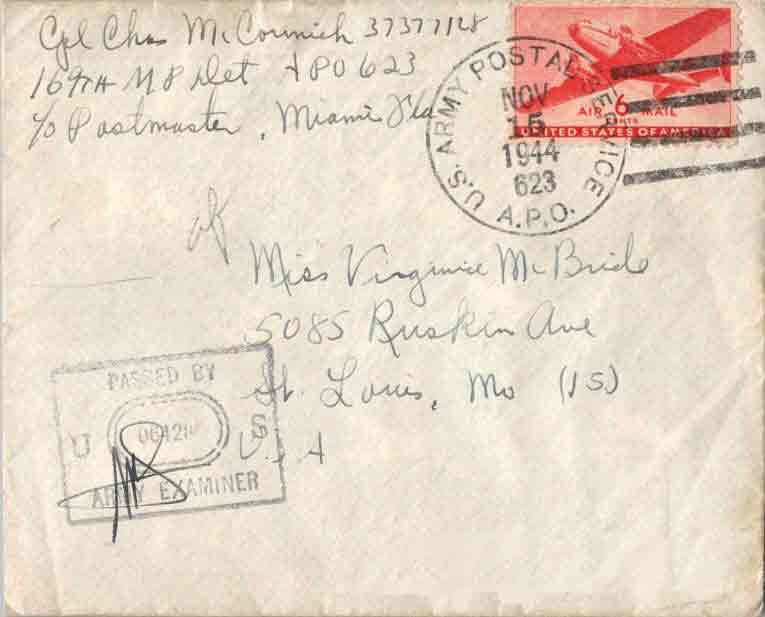 Cpl Chas McCormick 37377128
169TH MP Det APO 623
c/o Postmaster, Miami Fla
U.S. ARMY POSTAL SERVICE
NOV
15
1944
623
A.P.O.
AIR 6 MAIL
CENTS
UNITED STATES OF AMERICA
Miss Virginia McBride
5085 Ruskin Ave
St. Louis, Mo (15)
U.S.A
PASSED BY
U S
ARMY EXAMINER